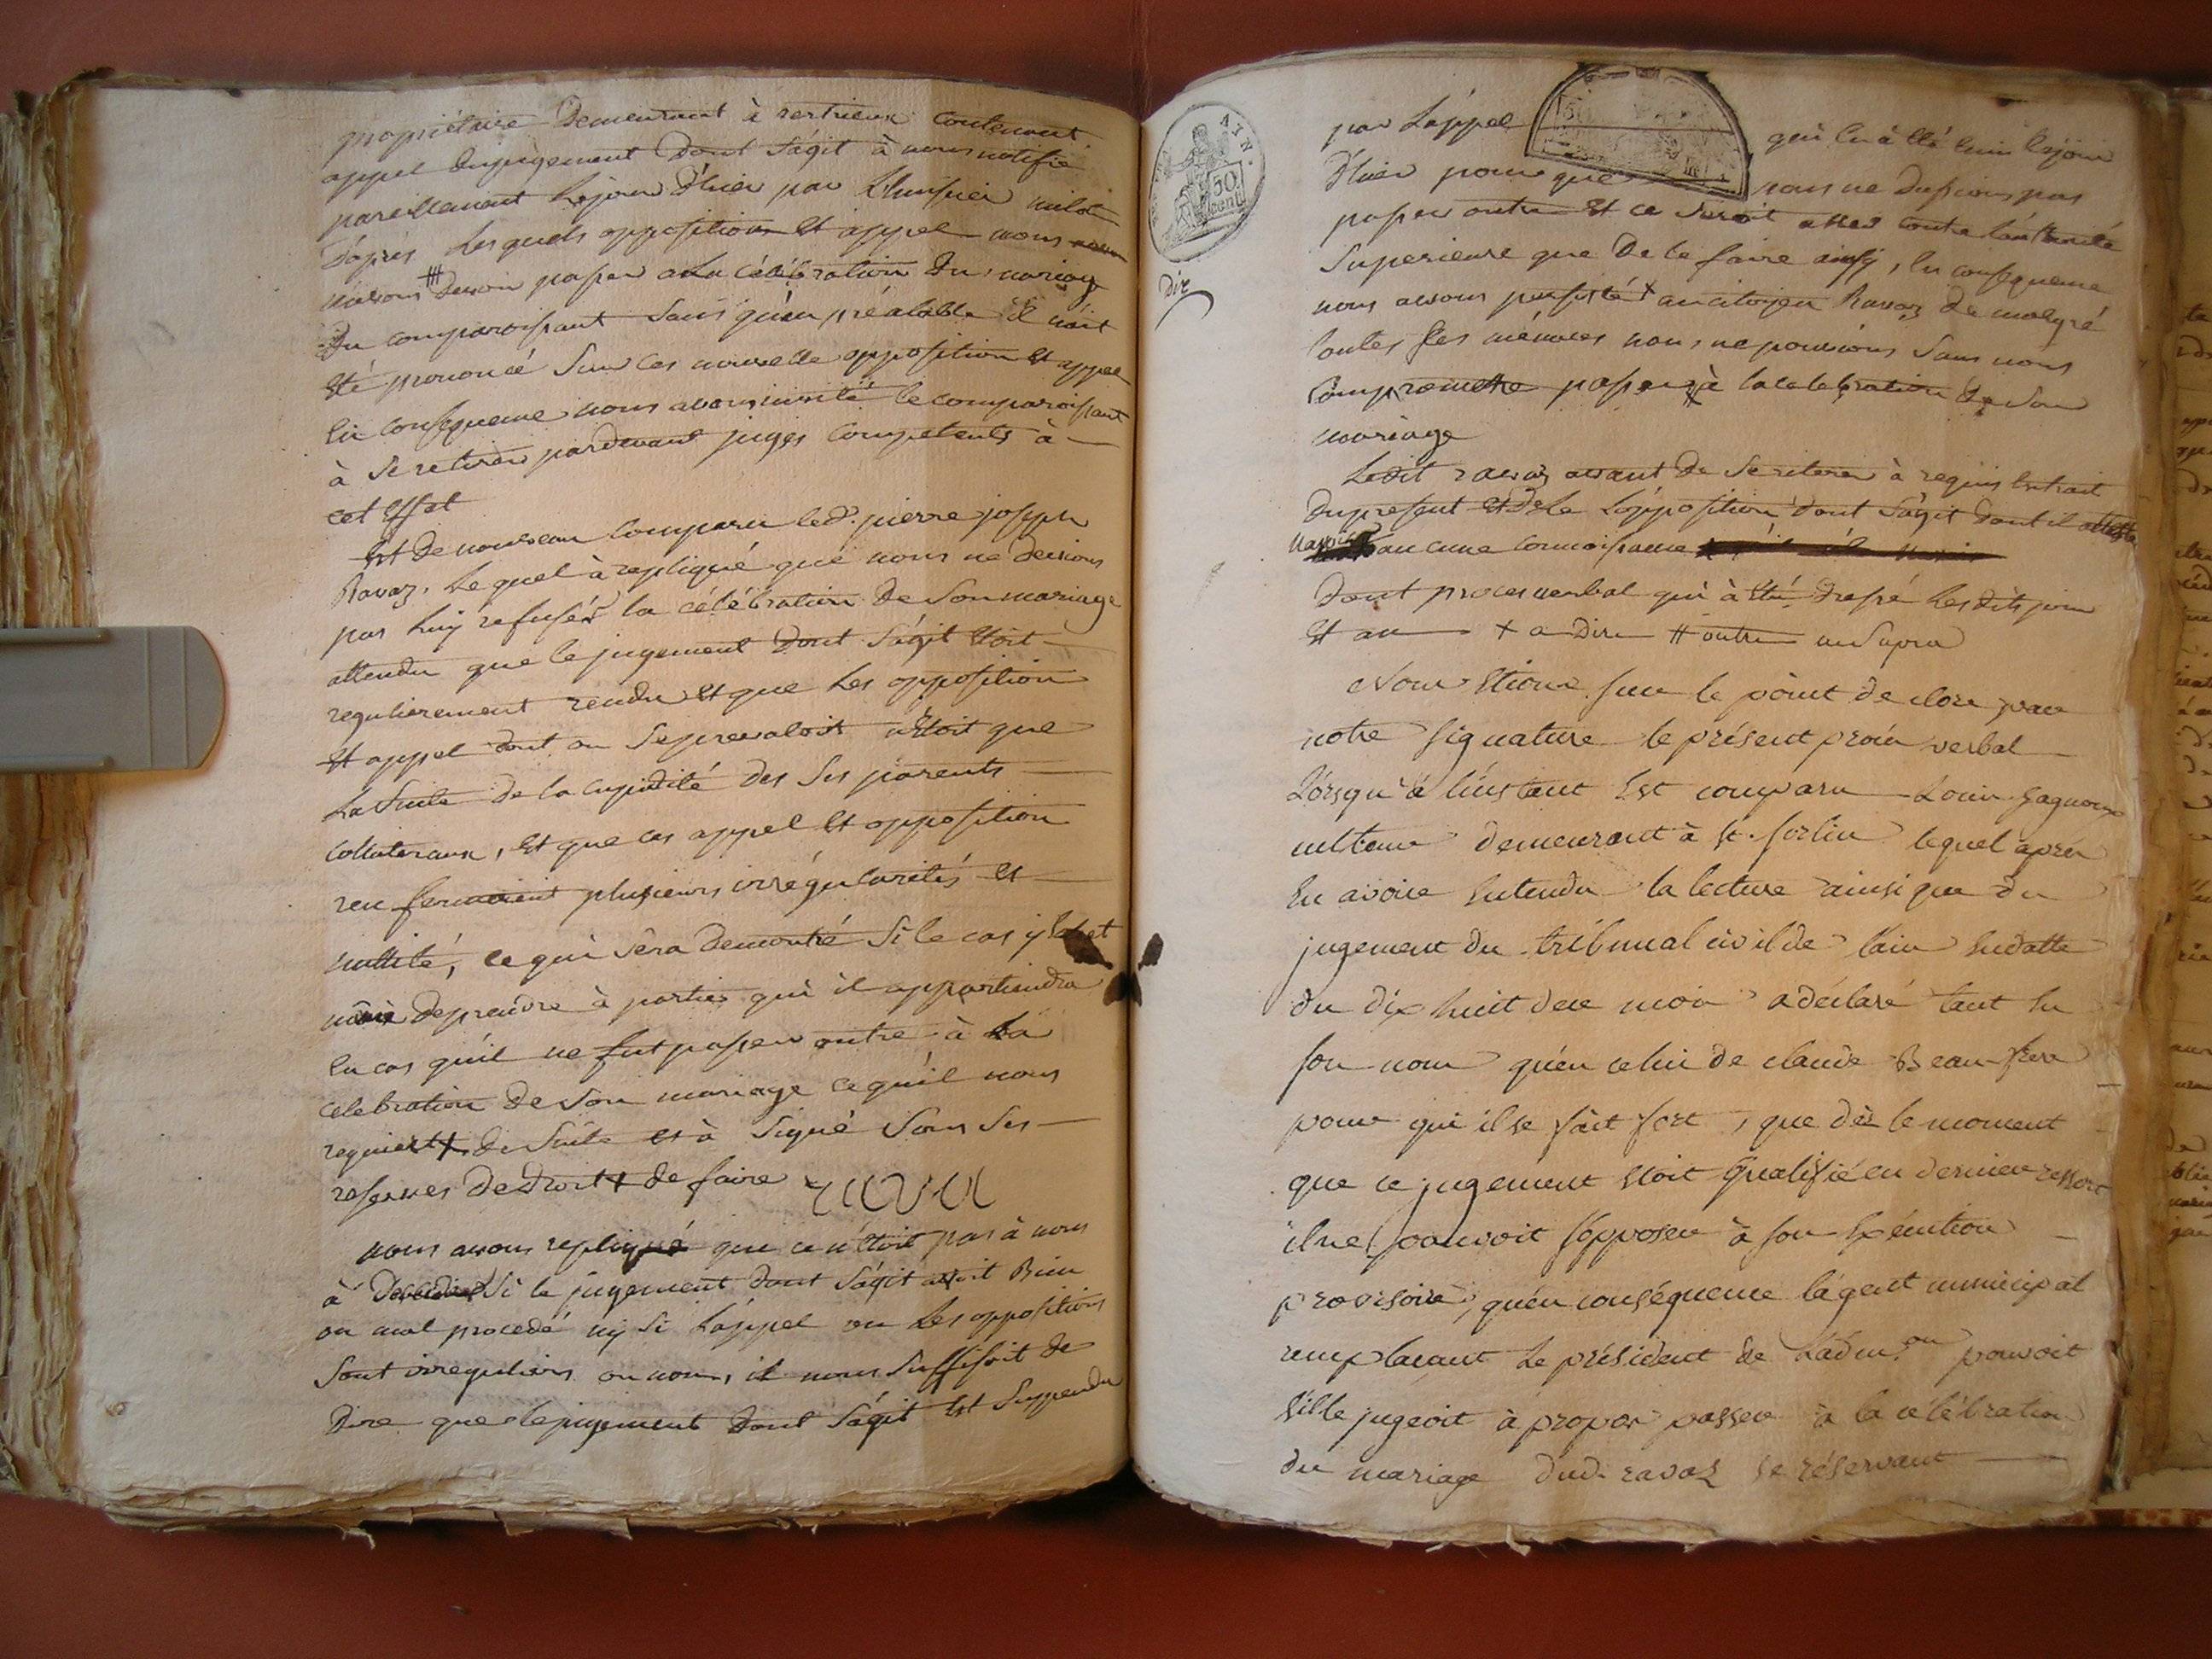 propriétaire Demeurant à vertrieux contenant
appel dujugement Dont S'agit à nous notifié
pareillement Lejour D'hier par L'huissier milot
D'après Lesquels opposition Et appel nous
navons devoir passer à La célébration Du mariage
Du comparoissant sans qu'au préalable il nait
Eté prononcé Sur ces nouvelle opposition Et appel
En consequence nous avons invité le comparoissant
à Se retirer pardevant juges Competents à
cet Effat
Est De nouveau Comparu led. pierre joseph
Ravaz, Lequel à repliqué qué nous ne devions
pas Luy refuser la célébration De Son mariage
attendu que le jugement Dont S'agit Etoit
regulierement rendu Et que Les opposition
Et appel dont on Seprevaloit n'Etoit que
La Suite de la Cupidité des Ses parents
Collateraux, Et que ces appel Et opposition
renfermoient plusieurs irrégularités et
nullité, ce qui sera Demontré Si le cas y
deprendre à parties qui il appartiendra
En cas qu'il ne fut passer outre à La
celebration De Son mariage ce qu'il nous
requiert de Suite et à Signé Sous Ses
reserves Dedroit + de faire
nous avons repliqué que ce n'Etoit pas à nous
à Decider Si le jugement Dont S'agit avoit Bien
ou mal procedé ny Si L'appel ou Les oppositions
Sont irreguliers ou non, il nous Suffisoit de
Dire que lejugement Dont S'agit Est Suspendu
50
cent
Dix
par L'appel qui En à Eté Emis Lejour
D'hier pour que nous ne Dussions pas
passer outre Et ce Seroit contre L'autorité
Superieure que De le faire ainsy, En consequence
nous avons persisté + au citoyen Ravaz De malgré
toutes Ses ménaces nous ne pouvions Sans nous
Compromettre passer # à la celebration De Son
mariage
Ledit ravaz avant De Seretirer à requis Extrait
Dupresent Et De L'opposition Dont S'agit Dont il atteste
navoir aucune connoissance
Dont proces verbal qui à Eté Dressé Les dits jour
Et an + a Dire # outre uuSupra
Nous Etions sur le point de clore par
notre signature le présent procès verbal
Lorsqu'à l'instant Est comparu Louis Gagnoux
cultteur demeurant à St. Sorlin lequel après
En avoir Entendu la lecture ainsi que du
jugement du tribunal civil de l'ain Endatte
du dix huit de ce mois a déclaré tant En
son nom qu'en celui de claude Beau frère
pour qui il se fait fort, que dès le moment
que ce jugement Etoit qualifié en dernier ressort
il ne pouvoit s'opposer à son Exécution
provisoire, qu'en conséquence l'agent municipal
remplacant Le président de L'adm.on pouvoit
S'il le jugeoit à propos passer à la célébration
du mariage dud. ravaz se réservant